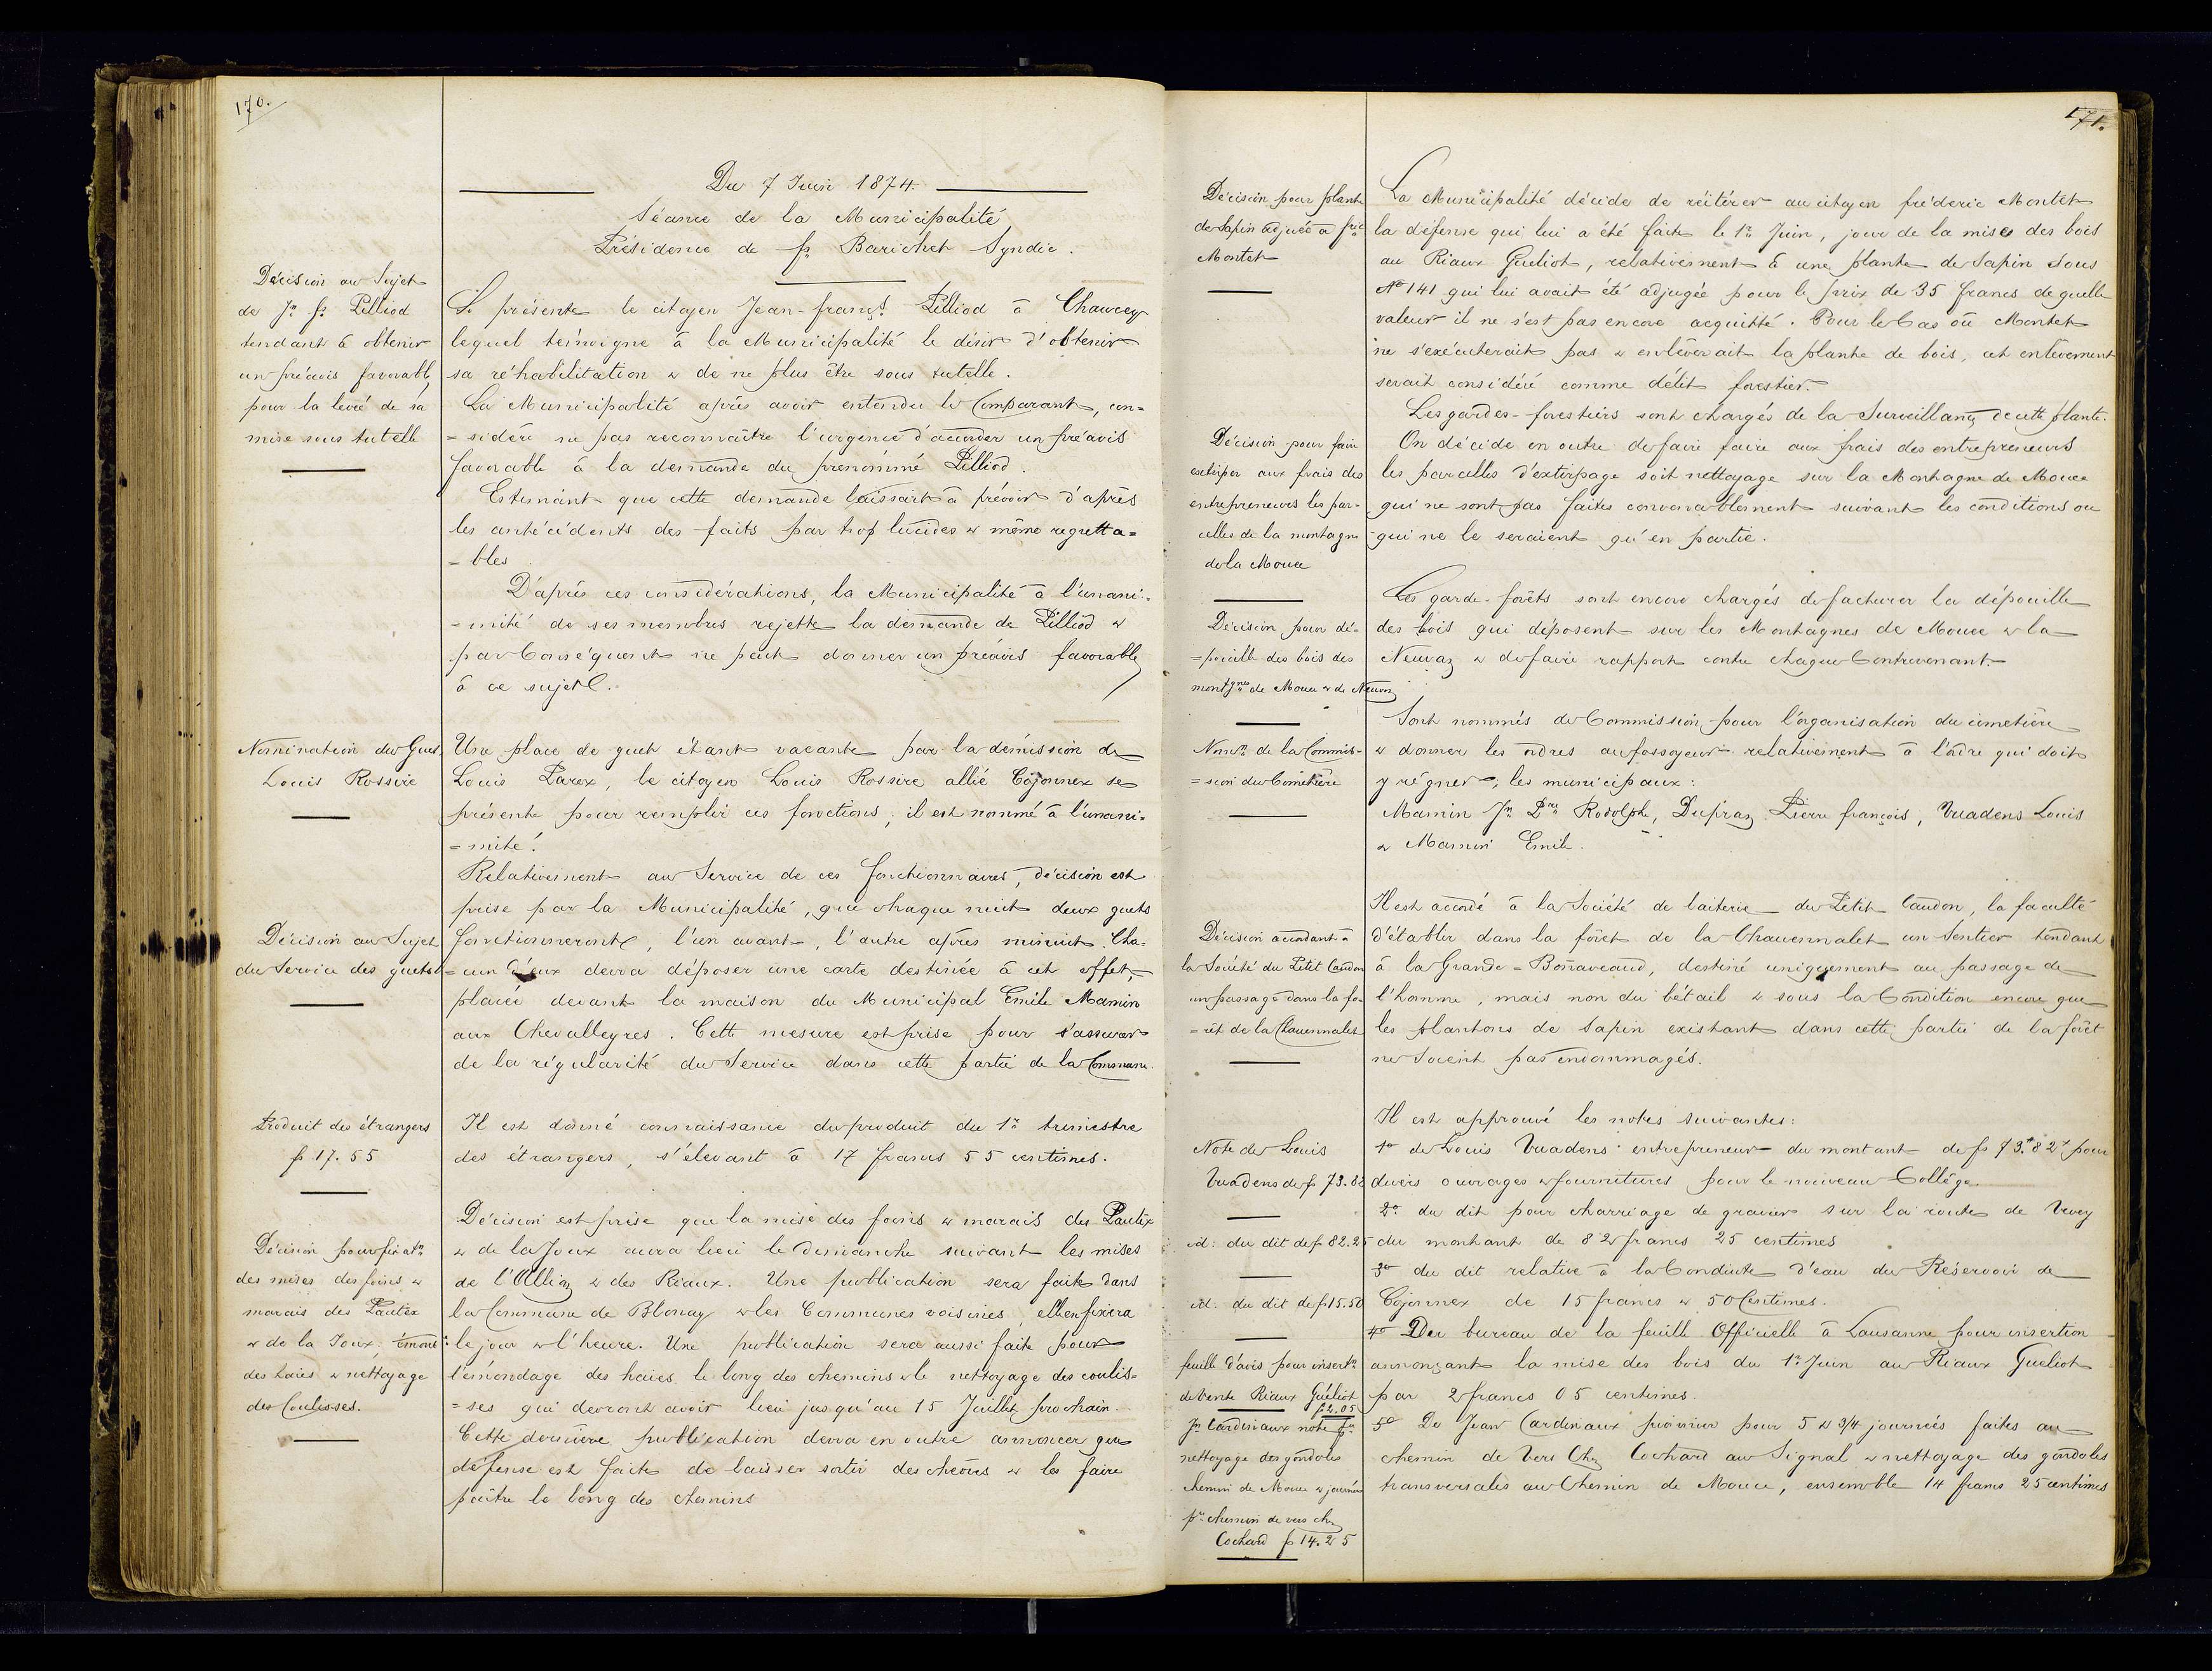 170.
Du 7 Juin 1874.
Séance de la Municipalité
Présidence de fs Barichet Syndic.
Décision au Sujet
de Jn fs Pilliod
tendant à obtenir
un préavis favorable
pour la levée de sa
mise sous tutelle
Se présente le citoyen Jean-françs Pilliod à Chaucey
lequel témoigne à la Municipalité le désir d'obtenir
sa réhabilitation & de ne plus être sous tutelle.
La Municipalité après avoir entendu le Comparant, con=
=sidère ne pas reconnaître l'urgence d'accorder un préavis
favorable à la demande du prénommé Pilliod.
Estimant que cette demande laissait à prévoir d'après
les antécédents des faits par trop lucides & même regretta=
=bles
D'après ces considérations, la Municipalité à l'unani=
=mité de ses membres rejette la demande de Pilliod &
par Conséquent ne peut donner un préavis favorable
à ce sujet.
Nomination du Guet
Louis Rossire
Une place de guet étant vacante par la démission de
Louis Parex, le citoyen Louis Rossire allié Cojonnex se
présente pour remplir ces fonctions; il est nommé à l'unani=
=mité.
Relativement au Service de ces fonctionnaires, décision est
prise par la Municipalité, que chaque nuit deux guets
Décision au Sujet
du Service des guets
fonctionneront, l'un avant, l'autre après minuit. Cha=
=cun d'eux devra déposer une carte destinée à cet effet,
placée devant la maison du Municipal Emile Mamin
aux Chevalleyres. Cette mesure est prise pour s'assurer
de la régularité du Service dans cette partie de la Commune.
Produit des étrangers
fs 17. 55
Il est donné connaissance du produit du 1er trimestre
des étrangers, s'élevant à 17 francs 55 centimes.
Décision pour fixatn
des mises des foins &
marais des Pautex
& de la Joux; émond:
des haies & nettoyage
des Coulisses.
Décision est prise que la mise des foins & marais des Pautex
& de la Joux aura lieu le dimanche suivant les mises
de l'Alliaz & des Riaux. Une publication sera faite dans
la Commune de Blonay & les Communes voisines, elle en fixera
le jour & l'heure. Une publication sera aussi faite pour
l'émondage des haies le long des chemins & le nettoyage des coulis=
=ses qui devront avoir lieu jusqu'au 15 Juillet prochain.
Cette dernière publication devra en outre annoncer que
défense est faite de laisser sortir des chèvres & les faire
paître le long des chemins
171.
Décision pour plante
de Sapin adjugée à fric
Montet
La Municipalité décide de réitérer au citoyen fréderic Montet
la défense qui lui a été faite le 1er Juin, jour de la mise des bois
au Riaux Gueliot, relativement à une plante de Sapin sous
No 141 qui lui avait été adjugée pour le prix de 35 francs de quelle
valeur il ne s'est pas encore acquitté. Pour le Cas où Montet
ne s'exécuterait pas & enlèverait la plante de bois, cet enlèvement
serait considéré comme délit forestier.
Les gardes-forestiers sont chargés de la Surveillance de cette plante.
Décision pour faire
extirper aux frais des
entrepreneurs les par-
celles de la montagne
de la Mouce
On décide en outre de faire faire aux frais des entrepreneurs
les parcelles d'extirpage soit nettoyage sur la Montagne de Mouce
qui ne sont pas faites convenablement suivant les conditions ou
qui ne le seraient qu'en partie.
Décision pour dé-
=pouille des bois des
montgnes de Mouce & de Neuvaz
Les garde-forêts sont encore chargés de facturer la dépouille
des bois qui déposent sur les Montagnes de Mouce & la
Neuvaz & de faire rapport contre chaque Contrevenant.
Nomn de la Commis-
=sion du Cimetière
Sont nommés de Commission pour l'organisation du cimetière
& donner les ordres au fossoyeur relativement à l'ordre qui doit
y régner, les municipaux:
Mamin Jn Dre Rodolphe, Dupraz Pierre françois, Vuadens Louis
& Mamin Emile.
Décision accordant à
la Société du Petit Caudon
un passage dans la fo-
=rêt de la Chauennalet
Il est accordé à la Société de laiterie du Petit Caudon, la faculté
d'établir dans la forêt de la Chauennalet un Sentier tendant
à la Grande=Bonaveaud, destiné uniquement au passage de
l'homme, mais non du bétail & sous la Condition encore que
les plantons de Sapin existant dans cette partie de la forêt
ne Soient pas endommagés.
Il est approuvé les notes suivantes:
Note de Louis
Vuadens de fs 73.82
1o de Louis Vuadens entrepreneur du montant de fs 73.82 pour
divers ouvrages & fournitures pour le nouveau Collège
id: du dit de fs 82.25
2o du dit pour charriage de gravier sur la route de Vevey
du montant de 82 francs 25 centimes
id. du dit de fs 15.50
3o du dit relative à la Conduite d'eau du Réservoir de
Cojonnex de 15 francs & 50 Centimes.
feuille d'avis pour insertn
de vente Riaux Guéliot
fs 2.05
4o Du bureau de la feuille Officielle à Lausanne pour insertion
annonçant la mise des bois du 1er Juin au Riaux Gueliot
par 2 francs 05 centimes.
Jn Cardinaux note pr
nettoyage des gondoles
chemin de Mouce & journées
pr chemin de vers chez
Cochard fs 14.25
5o De Jean Cardinaux pionnier pour 5 & 3/4 journées faites au
chemin de Vers Chez Cochard au Signal & nettoyage des gondoles
transversales au Chemin de Mouce, ensemble 14 francs 25 centimes